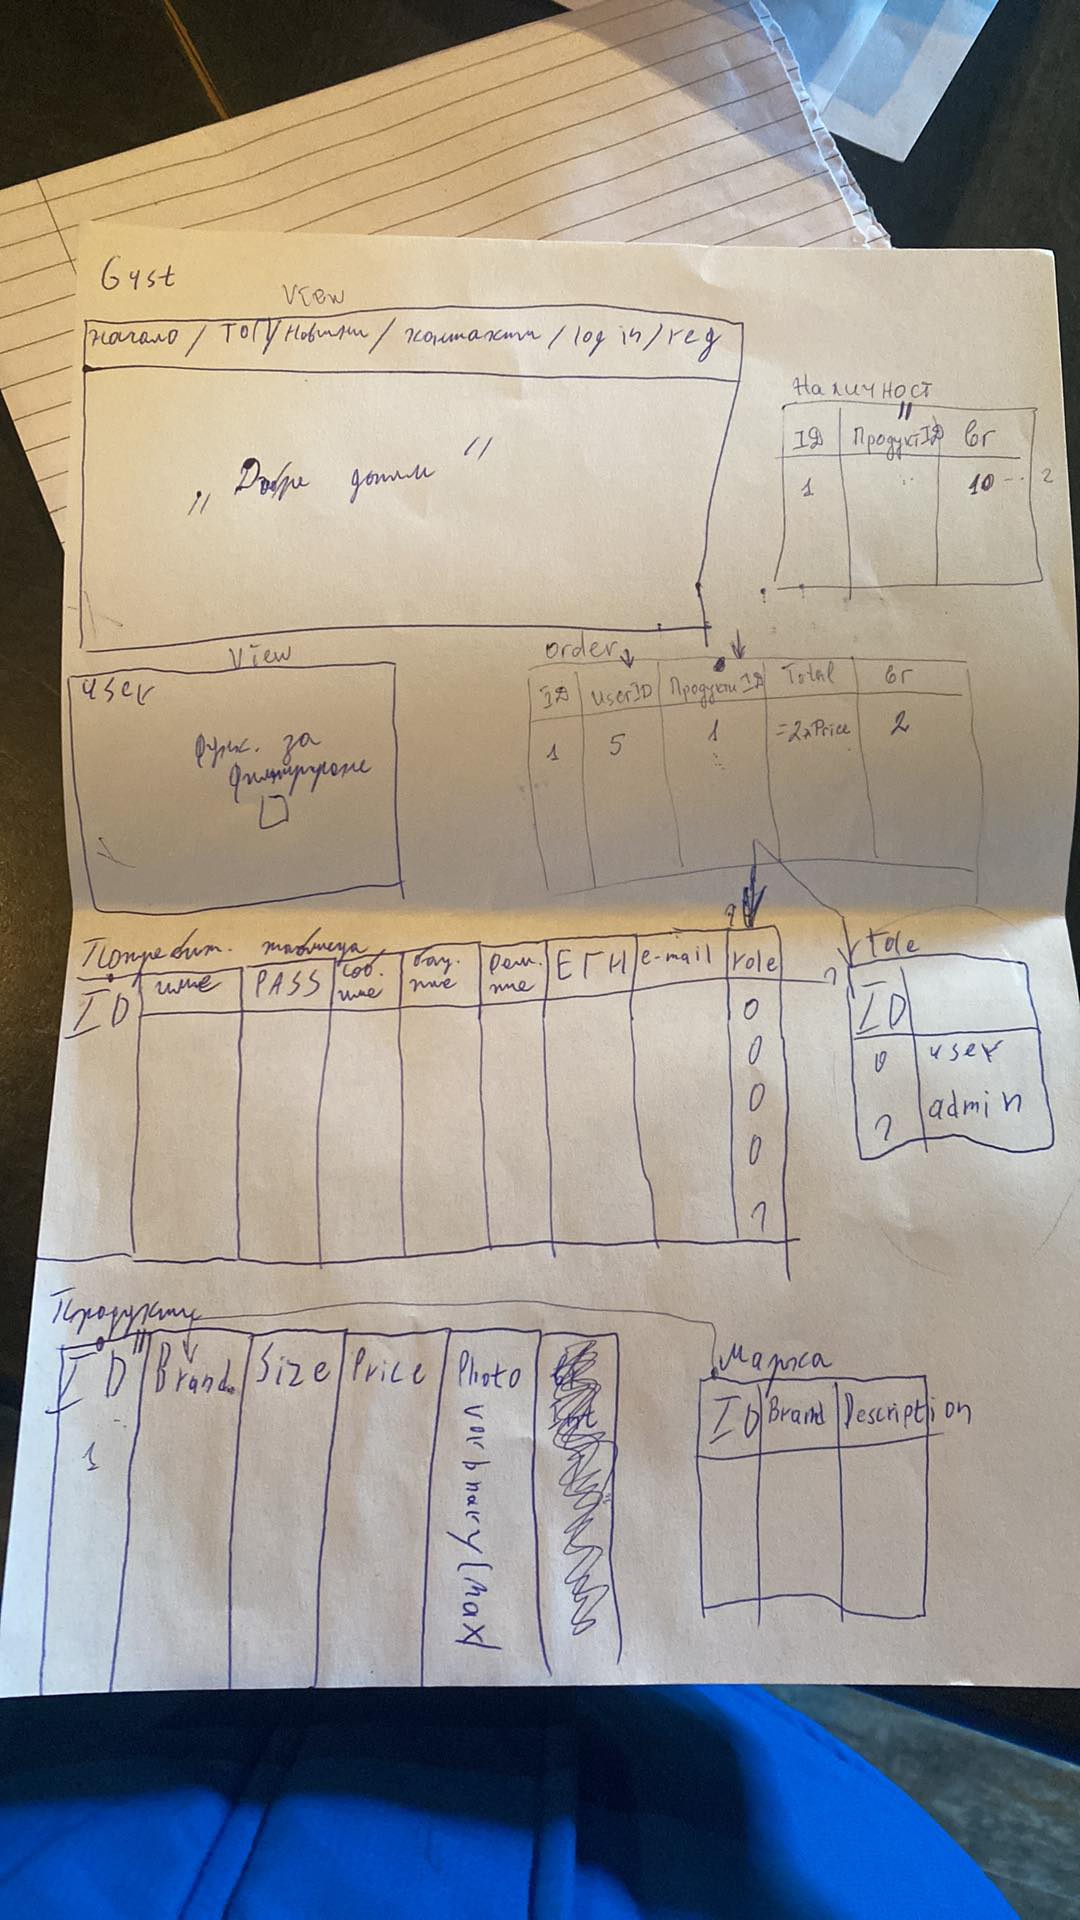 Gyst
View
Начало / ТОП/Новини / контакти / log in / reg
„ Добре дошли "
Наличност
ID Продукт ID br
1 10 2
View
user
функ. за
филтриране
order
ID userID Продукти ID Total br
1 5 1 =2xPrice 2
Потребит. таблица
ID име PASS соб. име баш. име фам. име ЕГН e-mail role
0
0
0
0
1
role
ID
0 user
1 admin
Продукти
ID Brand Size Price Photo
1
varbinary(max)
Марка
ID Brand Description